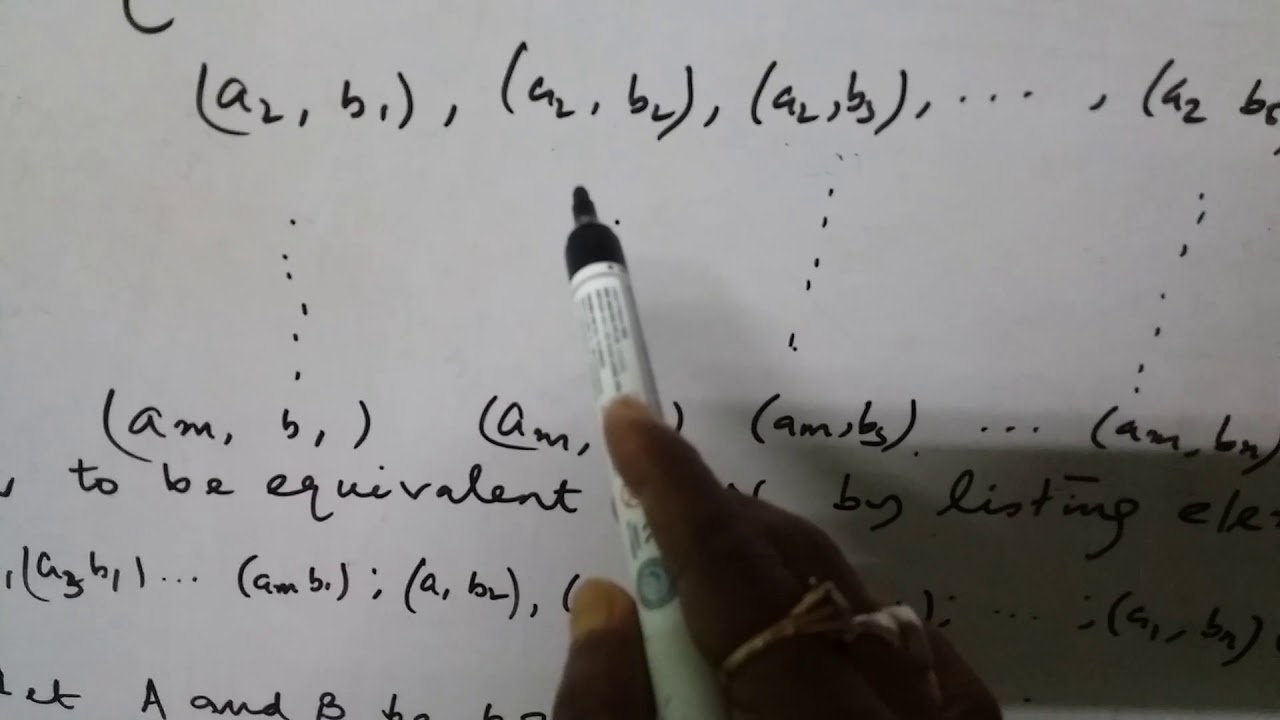 (a2, b1), (a2, b2), (a2, b3), ... , (a2 b
(am, b1) (am, ) (am, b3) ... (am, bn)
to be equivalent by listing ele
, (a3 b1) ... (am b1) ; (a1 b2), ( ); ... ; (a1, bn)
et A and B be